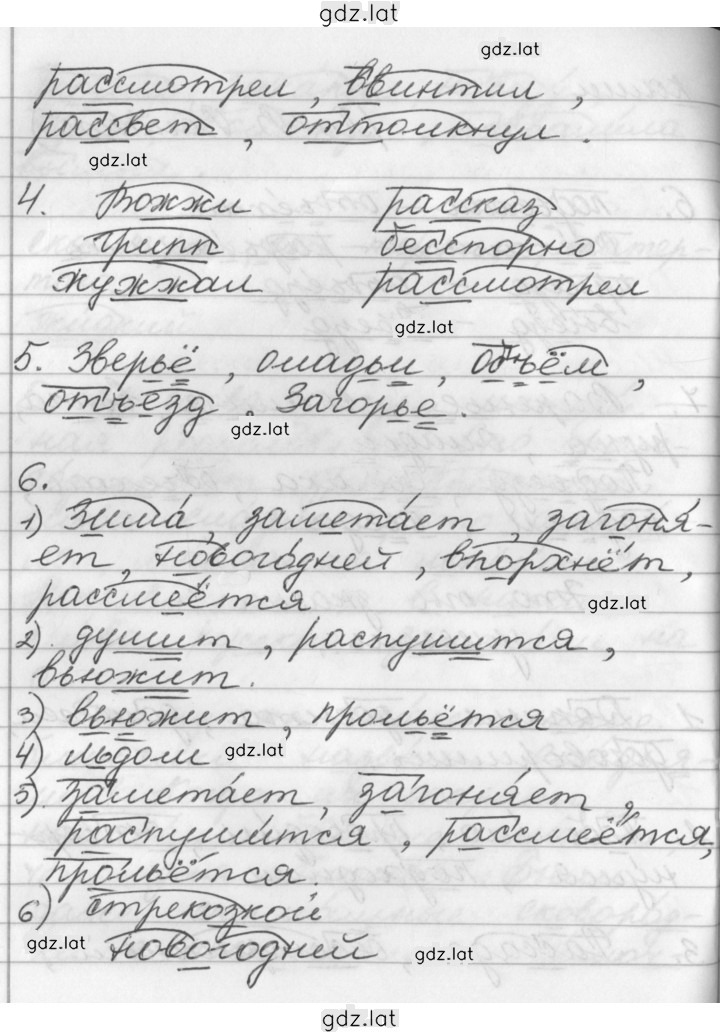 gdz.lat
gdz.lat
рассмотрел, ввинтил,
рассвет, оттолкнул.
gdz.lat
4. Вожжи рассказ
грипп бесспорно
жужжал рассмотрел
gdz.lat
5. Зверьё, оладьи, объём,
отъезд, Загорье.
gdz.lat
6.
1) Зима́, замета́ет, загоня́-
ет, нового́дней, впорхнёт,
рассмеётся
gdz.lat
2). душит, распушится,
вьюжит.
3) вьюжит, прольётся
4) льдом
gdz.lat
5). замета́ет, загоня́ет,
распуши́тся, рассмеётся,
прольётся.
6) стрекозкой
gdz.lat
новогодней
gdz.lat
gdz.lat